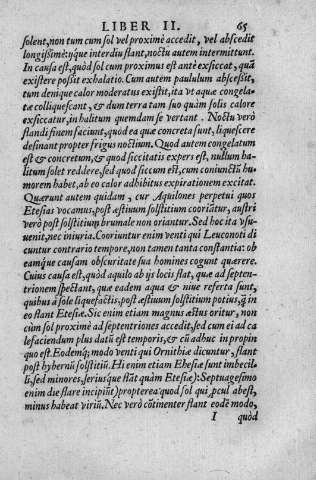 LIBER II. 65
solent, non tum cum sol vel proximè accedit, vel abscedit
longißimè: ijque interdiu flant, noctu autem intermittunt.
In causa est, quòd sol cum proximus est antè exsiccat, quàm
existere possit exhalatio. Cum autem paululum abscessit,
tum denique calor moderatus existit, ita vt aquæ congela-
tæ colliquescant, & dum terra tam suo quàm solis calore
exsiccatur, in halitum quemdam se vertant. Noctu verò
flandi finem faciunt, quòd ea quæ concreta sunt, liquescere
desinant propter frigus noctium. Quod autem congelatum
est & concretum, & quod siccitatis expers est, nullum ha-
litum solet reddere, sed quod siccum est, cum coniunctū hu-
morem habet, ab eo calor adhibitus expirationem excitat.
Quærunt autem quidam, cur Aquilones perpetui quos
Etesias vocamus, post æstiuum solstitium cooriātur, austri
verò post solstitium brumale non oriantur. Sed hoc ita vsu-
uenit, nec iniuria. Cooriuntur enim venti qui Leuconoti di-
cuntur contrario tempore, non tamen tanta constantia: ob
eamque causam obscuritate sua homines cogunt quærere.
Cuius causa est, quòd aquilo ab ijs locis flat, quæ ad septen-
trionem spectant, quæ eadem aqua & niue referta sunt,
quibus à sole liquefactis, post æstiuum solstitium potius, q̃ in
eo flant Etesiæ. Sic enim etiam magnus æstus oritur, non
cùm sol proximè ad septentriones accedit, sed cum ei ad ca
lefaciendum plus datū est temporis, & cū adhuc in propin
quo est. Eodemq; modo venti qui Ornithiæ dicuntur, flant
post hybernū solstitiū. Hi enim etiam Etesiæ sunt imbecil-
li, sed minores, seriusque flāt quàm Etesiæ): Septuagesimo
enim die flare incipiūt) propterea quod sol qui ꝓcul abest,
minus habeat viriū. Nec verò cōtinenter flant eodē modo,
I quòd